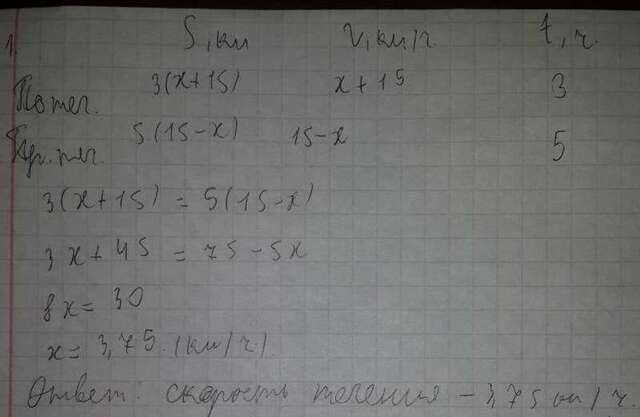 1. S, км V, км/ч t, ч.
По теч. 3(x+15) x+15 3
Пр. теч. 5.(15-x) 15-x 5
3(x+15) = 5(15-x)
3x+45 = 75-5x
8x = 30
x = 3,75 (км/ч)
Ответ: скорость течения - 3,75 км/ч.